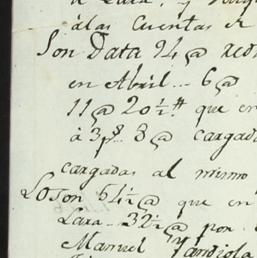 de Lara, y
alas Cuentas de
Son Data 94@
en Abril... 6@
11@ 20½ ## que en
à 3 p.s 8@ cargada
cargadas al mismo
Loson 64½@ que en
Lara... 32½@ por
Manuel Yandiola